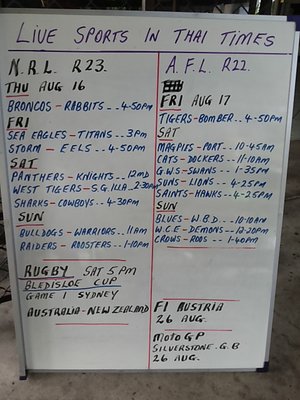 LIVE SPORTS IN THAI TIMES
N.R.L. R23.
THU AUG 16
BRONCOS - RABBITS -- 4-50pm
FRI
SEA EAGLES - TITANS -- 3pm
STORM - EELS -- 4-50pm
SAT
PANTHERS - KNIGHTS -- 12MD
WEST TIGERS - S.G.ILLA - 2-30pm
SHARKS - COWBOYS -- 4-30pm
SUN
BULLDOGS - WARRIORS -- 11am
RAIDERS - ROOSTERS -- 1-10pm
RUGBY SAT 5PM
BLEDISLOE CUP
GAME 1 SYDNEY
AUSTRALIA - NEW ZEALAND
A.F.L. R22.
FRI AUG 17
TIGERS - BOMBER -- 4-50pm
SAT
MAGPIES - PORT -- 10-45am
CATS - DOCKERS -- 11-10am
G.W.S - SWANS -- 1-35pm
SUNS - LIONS -- 4-25pm
SAINTS - HAWKS -- 4-25pm
SUN
BLUES - W.B.D. -- 10-10am
W.C.E - DEMONS -- 12-20pm
CROWS - ROOS -- 1-40pm
F1 AUSTRIA
26 AUG.
MOTO GP
SILVERSTONE - G.B
26 AUG.